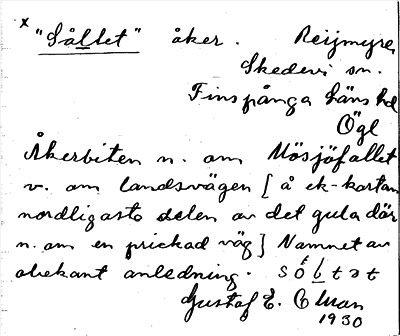 x "Såltet" åker. Reijmyre,
Skedevi sn.
Finspånga läns hd
Ögl
Åkerbiten n. om Mösjöfallet
v. om landsvägen [å ek-kartan
nordligaste delen av det gula där
n. om en prickad väg] Namnet av
obekant anledning.
Gustaf E.
1930